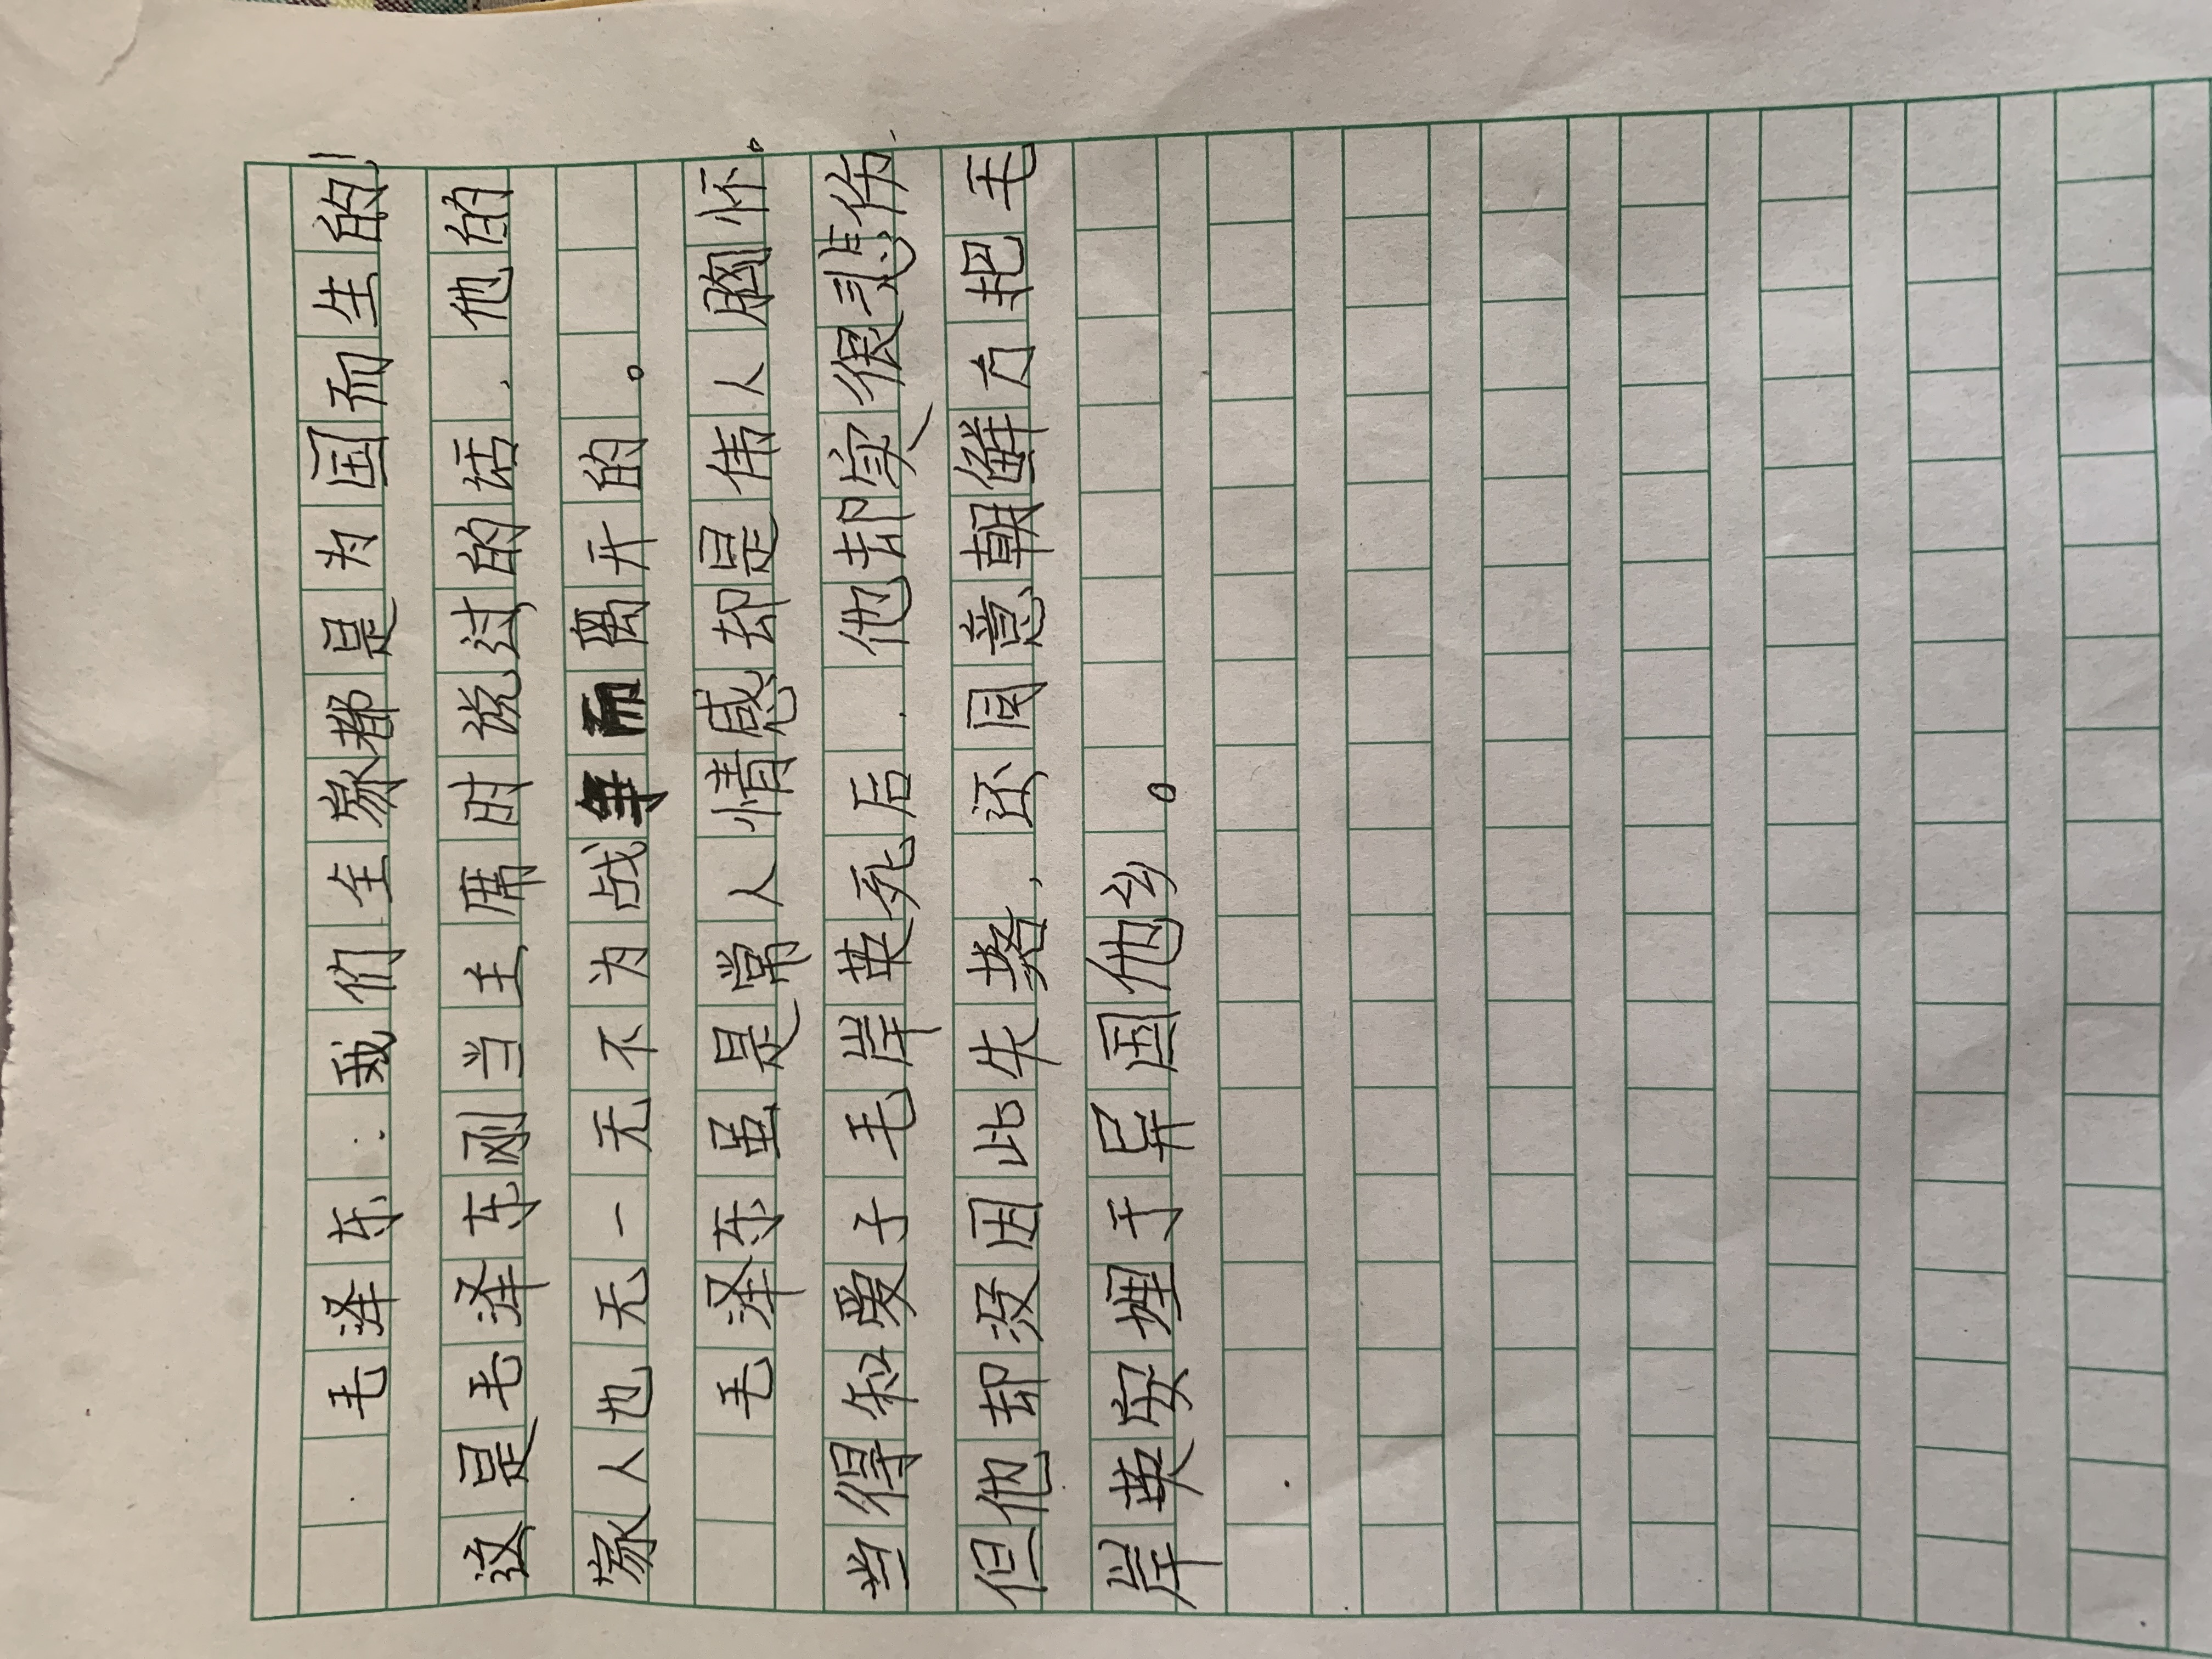 毛泽东:我们全家都是为国而生的!
这是毛泽东刚当主席时说过的话,他的
家人也无一无不为战争而离开的。
毛泽东虽是常人情感却是伟人胸怀。
当得知爱子毛岸英死后,他却实很悲伤,
但他却没因此失态,还同意朝鲜方把毛
岸英安埋于异国他乡。